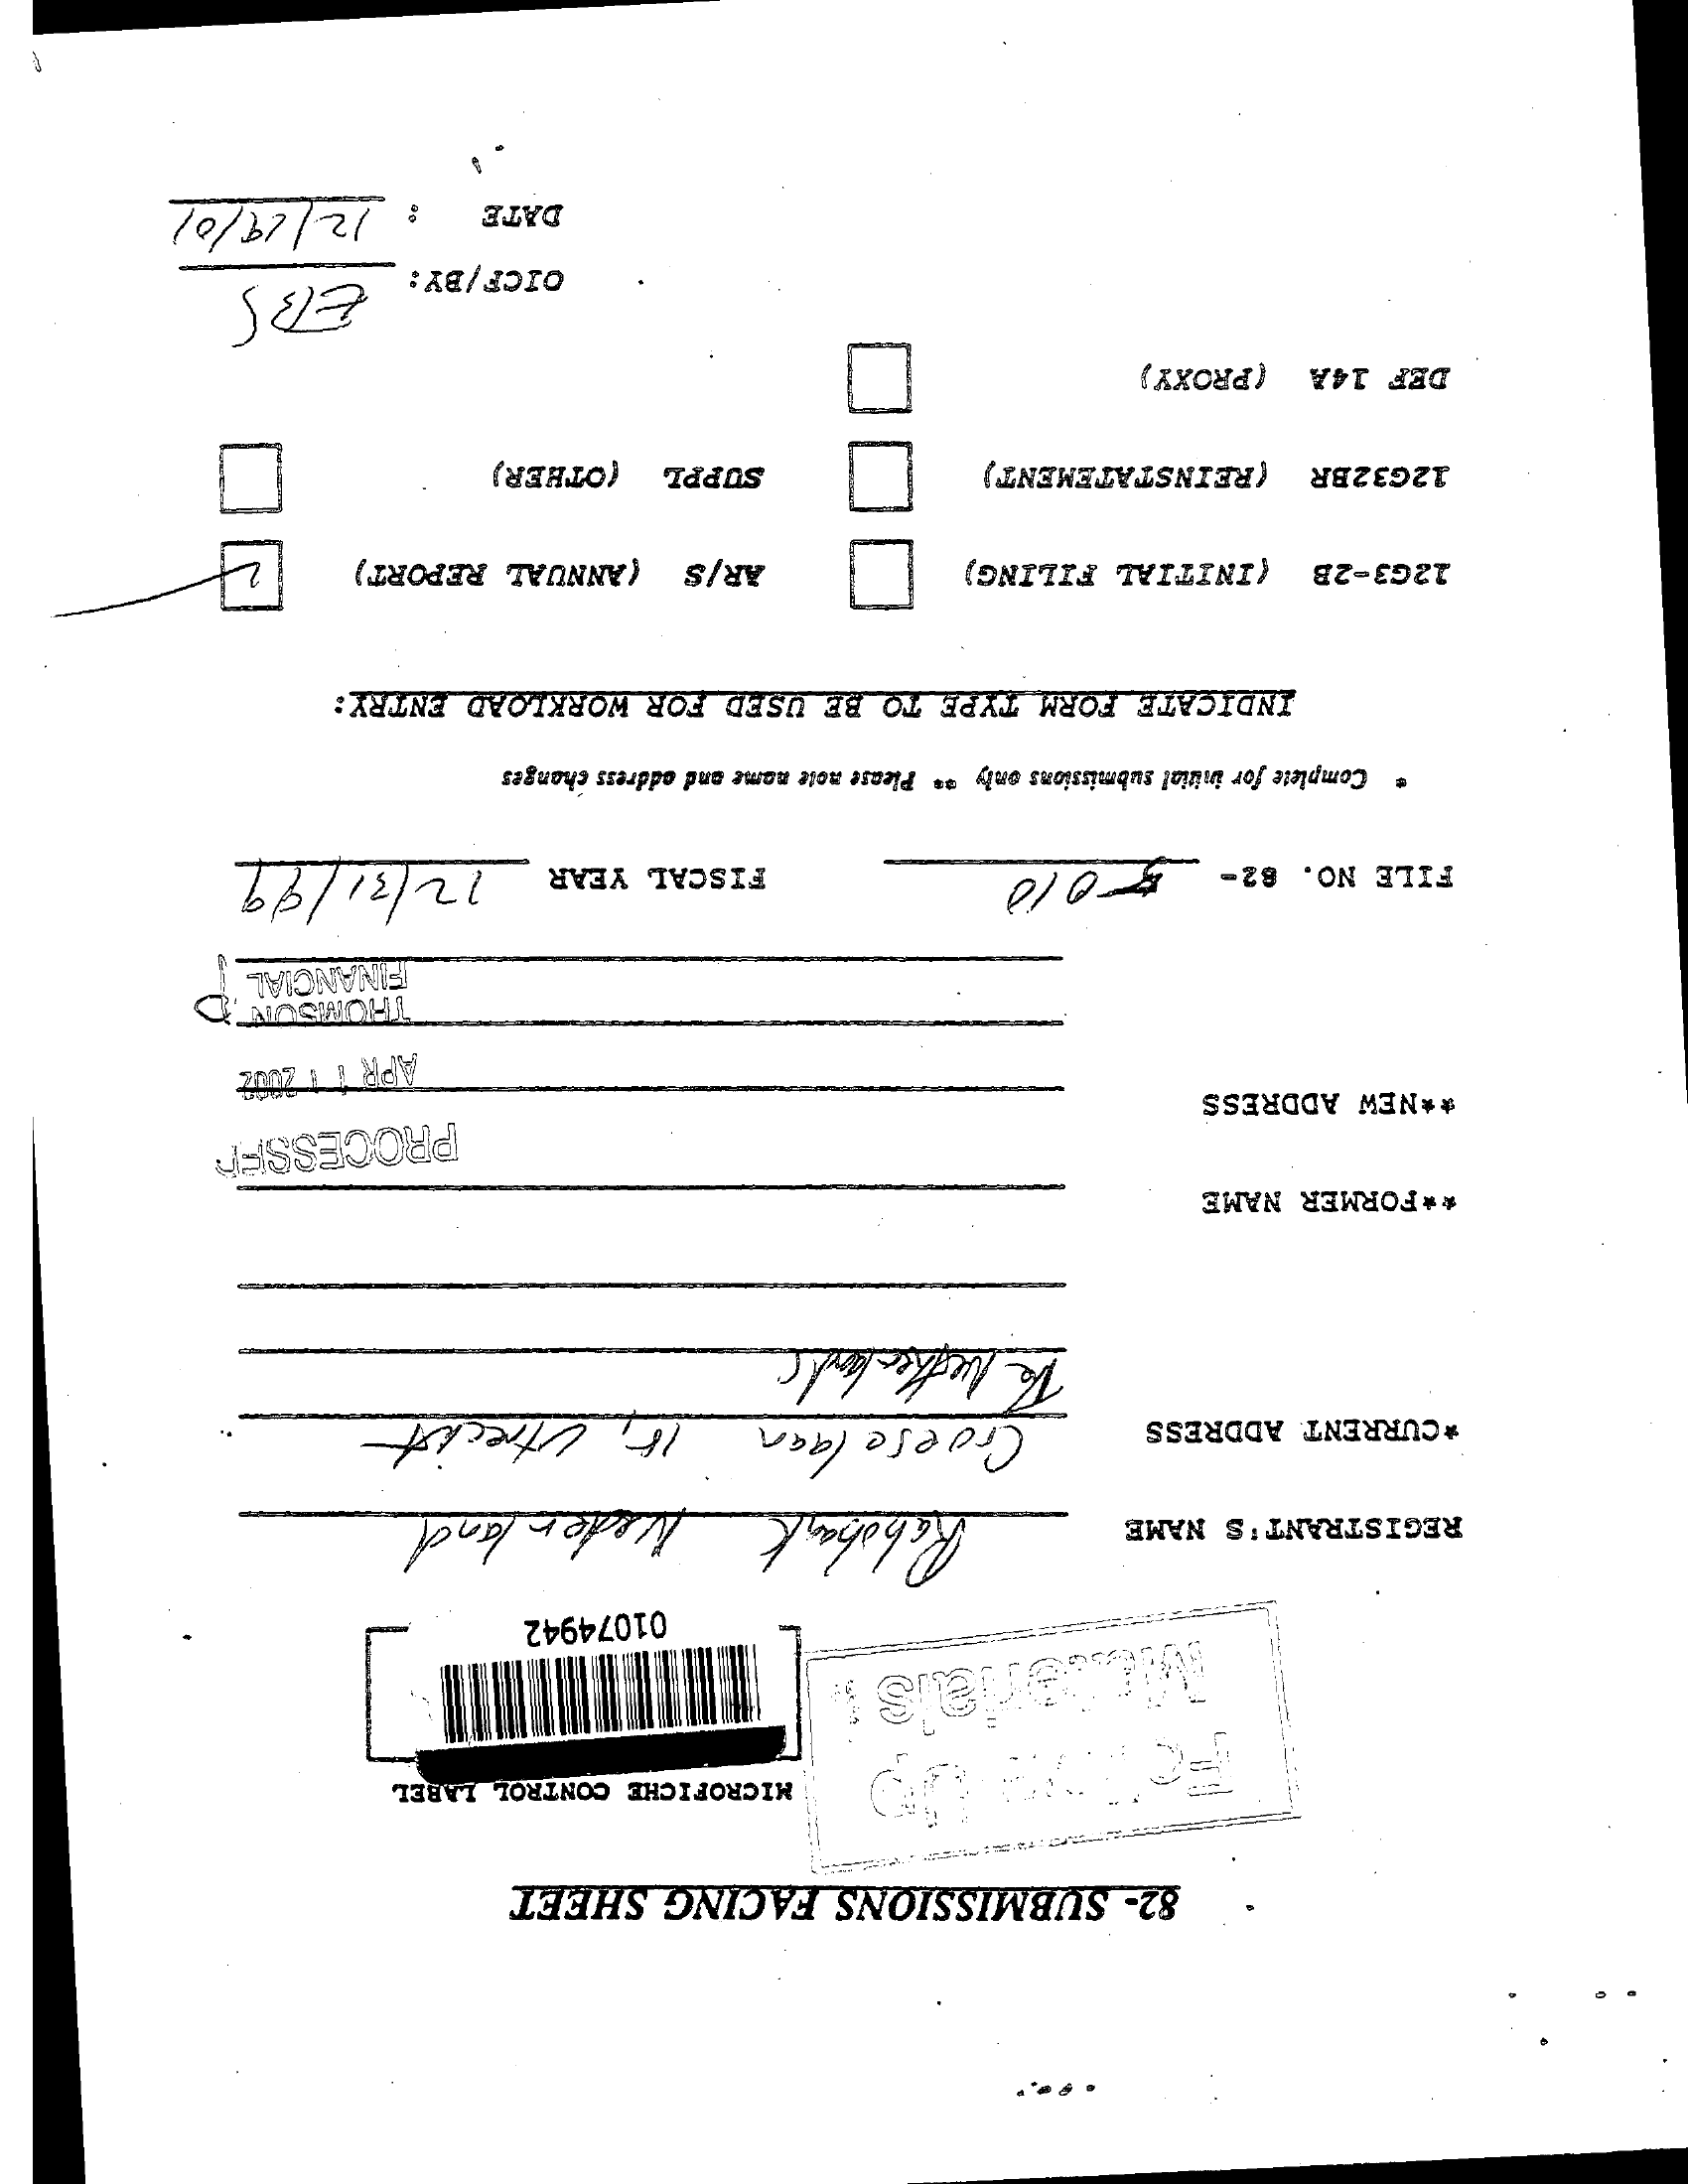 82- SUBMISSIONS FACING SHEET
Follow-Up
Materials
MICROFICHE CONTROL LABEL
01074942
REGISTRANT'S NAME Rabobank Nederland
*CURRENT ADDRESS Croeselaan 18, Utrecht
The Netherlands
**FORMER NAME
PROCESSED
**NEW ADDRESS
APR 11 2002
THOMSON
FINANCIAL
FILE NO. 82- 5010 FISCAL YEAR 12/31/99
* Complete for initial submissions only ** Please note name and address changes
INDICATE FORM TYPE TO BE USED FOR WORKLOAD ENTRY:
12G3-2B (INITIAL FILING) AR/S (ANNUAL REPORT)
12G32BR (REINSTATEMENT) SUPPL (OTHER)
DEF 14A (PROXY)
OICF/BY: EBS
DATE : 12/19/01